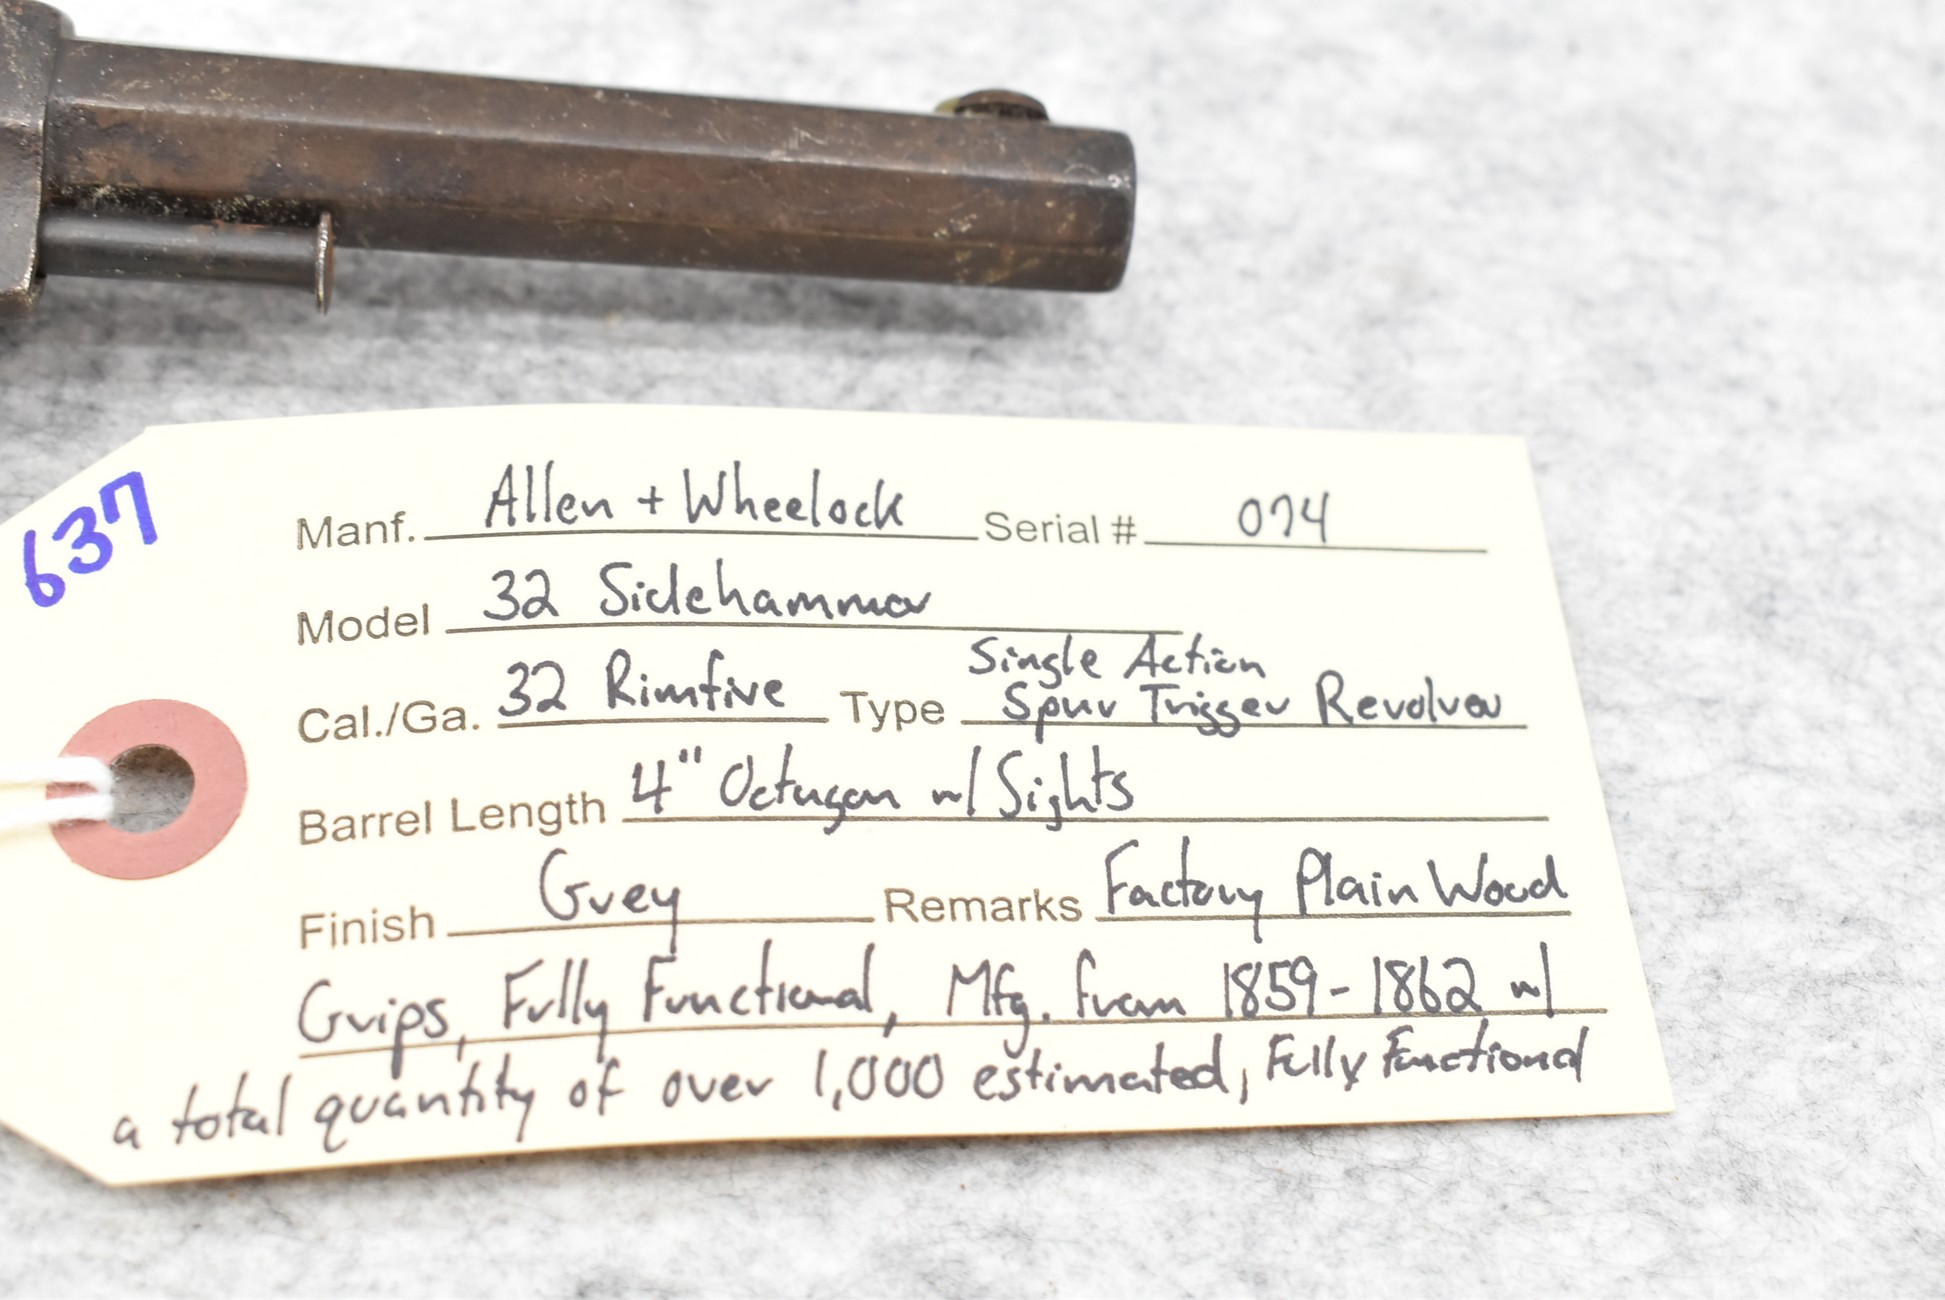 637
Manf. Allen + Wheelock Serial # 074
Model 32 Sidehammer
Cal./Ga. 32 Rimfire Type Single Action
Spur Trigger Revolver
Barrel Length 4" Octugon w/ Sights
Finish Grey Remarks Factory Plain Wood
Grips, Fully Functional, Mfg. from 1859-1862 w/
a total quantity of over 1,000 estimated, Fully Functional